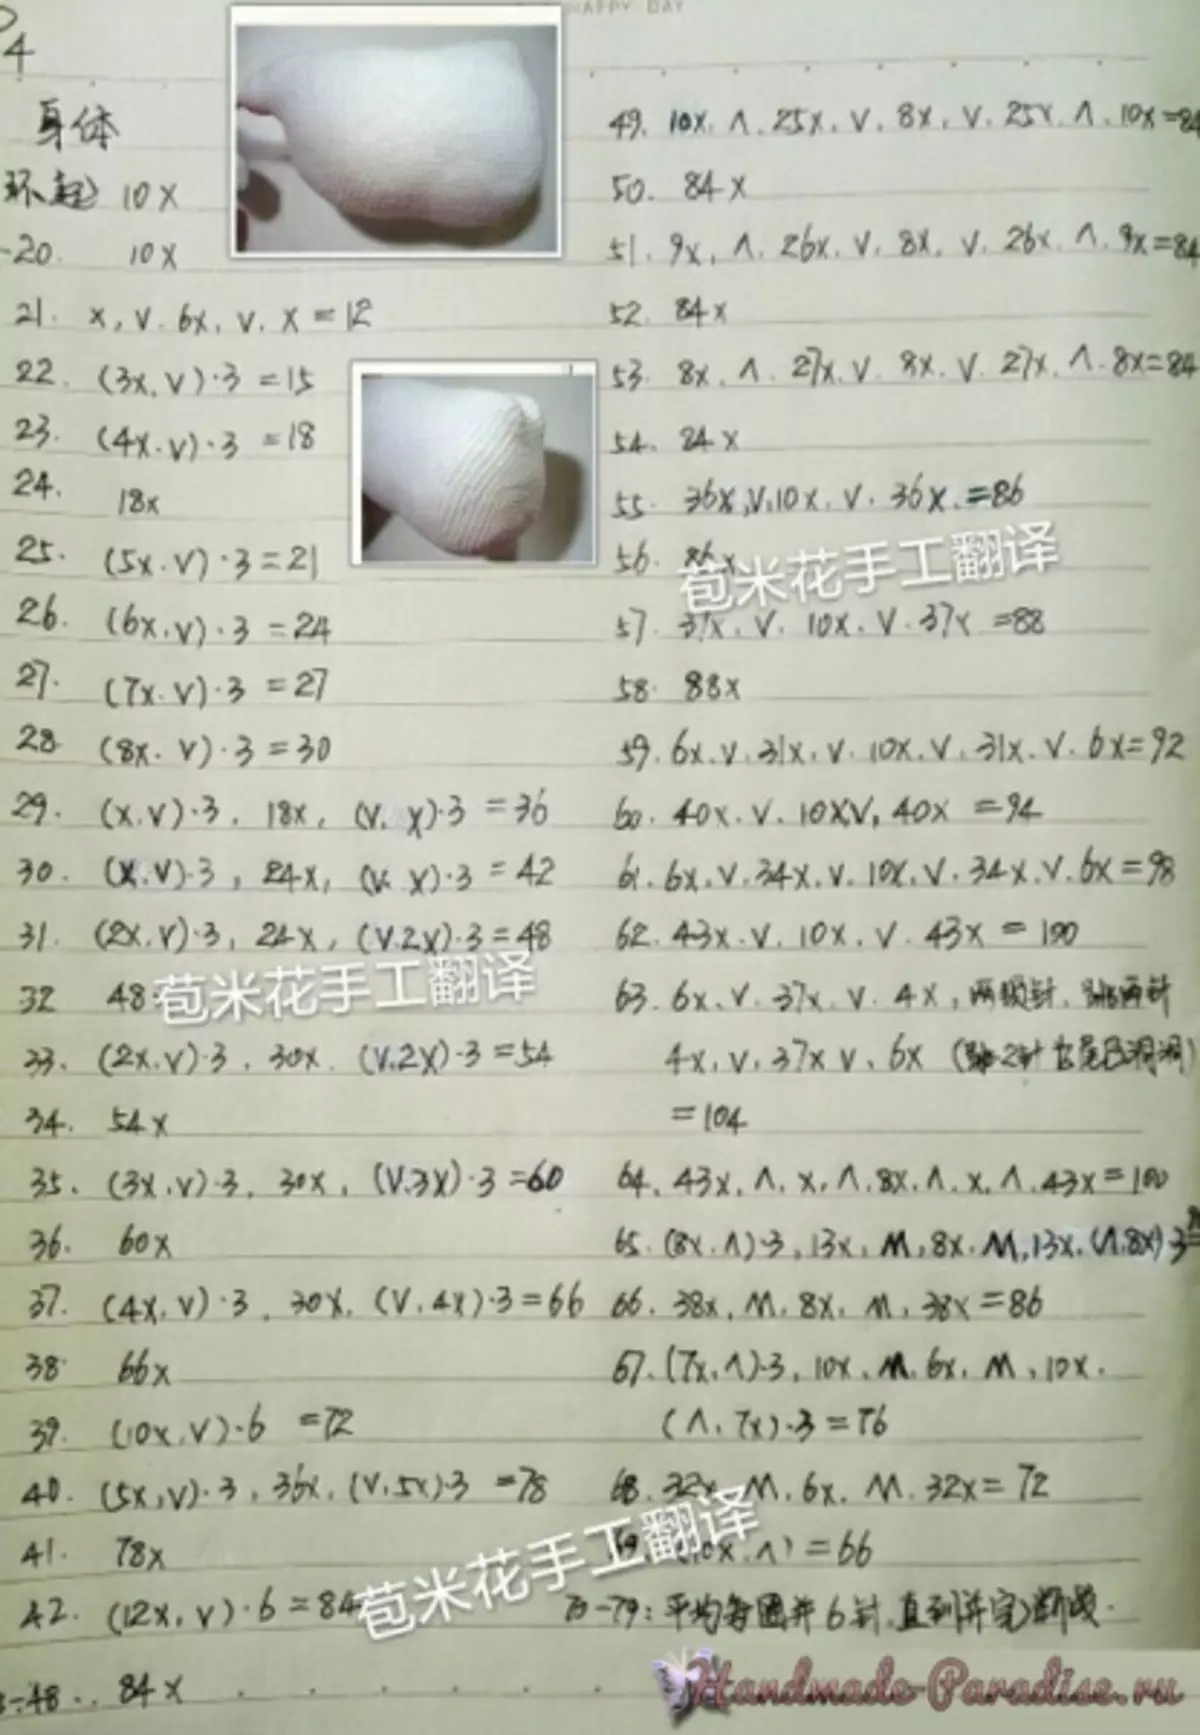 HAPPY DAY
4
身体
环起 10X
-20. 10X
21. X, V. 6X, V. X = 12
22. (3X. V)·3 = 15
23. (4X. V)·3 = 18
24. 18X
25. (5X. V)·3 = 21
26. (6X. V)·3 = 24
27. (7X. V)·3 = 27
28 (8X. V)·3 = 30
29. (X. V)·3. 18X, (V. X)·3 = 36
30. (X. V)·3, 24X, (V. X)·3 = 42
31. (2X. V)·3, 24X, (V.2X)·3 = 48
32 48
33. (2X. V)·3. 30X. (V.2X)·3 = 54
34. 54X
35. (3X. V)·3. 30X. (V.3X)·3 = 60
36. 60X
37. (4X. V)·3. 30X. (V. 4X)·3 = 66
38 66X
39. (10X. V)·6 = 72
40. (5X, V)·3. 36X. (V. 5X)·3 = 78
41. 78X
42. (12X, V)·6 = 84
-48.. 84X
49. 10X. Λ. 25X. V. 8X. V. 25X. Λ. 10X = 84
50. 84X
51. 9X, Λ. 26X. V. 8X. V. 26X. Λ. 9X = 84
52. 84X
53. 8X. Λ. 27X. V. 8X. V. 27X. Λ. 8X = 84
54. 84X
55. 36X, V. 10X. V. 36X. = 86
56. 86X
57. 37X. V. 10X. V. 37X = 88
58. 88X
59. 6X. V. 31X. V. 10X. V. 31X. V. 6X = 92
60. 40X. V. 10X. V. 40X = 94
61. 6X. V. 34X. V. 10X. V. 34X. V. 6X = 98
62. 43X. V. 10X. V. 43X = 100
63. 6X. V. 37X. V. 4X, 两锁针. 跳两针
4X, V. 37X V. 6X (跳2针 尾巴洞洞)
= 104
64. 43X. Λ. X. Λ. 8X. Λ. X. Λ. 43X = 100
65. (8X. Λ)·3, 13X, M, 8X. M, 13X. (Λ. 8X)·3 =
66. 38X. M. 8X. M. 38X = 86
67. (7X. Λ)·3, 10X. M. 6X. M, 10X.
(Λ. 7X)·3 = 76
68. 32X. M. 6X. M. 32X = 72
69. (10X. Λ) = 66
70-79: 平均每圈并6针, 直到并完 断线.
苞米花手工翻译
苞米花手工翻译
苞米花手工翻译
Handmade-Paradise.ru